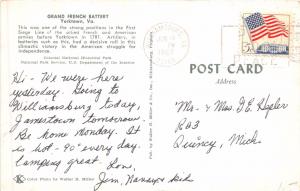 GRAND FRENCH BATTERY
Yorktown, Va.
This was one of the strong positions in the First
Siege Line of the allied French and American
armies before Yorktown in 1781. Artillery, in
batteries such as this, had a decisive role in this
climactic victory in the American struggle for
independence.
Colonial National Historical Park
National Park Service, U.S. Department of the Interior
Hi - We were here
yesterday. Going to
Williamsburg today,
Jamestown tomorrow.
Be home Monday. It
is hot - 90° every day.
Camping great. Love,
Jim, Nancy & kids
Color Photo by Walter H. Miller
Pub. by Walter H. Miller & Co., Inc., Williamsburg, Virginia
POST CARD
Address
Mr. & Mrs. D.E. Hegler
R#3
Quincy, Mich.